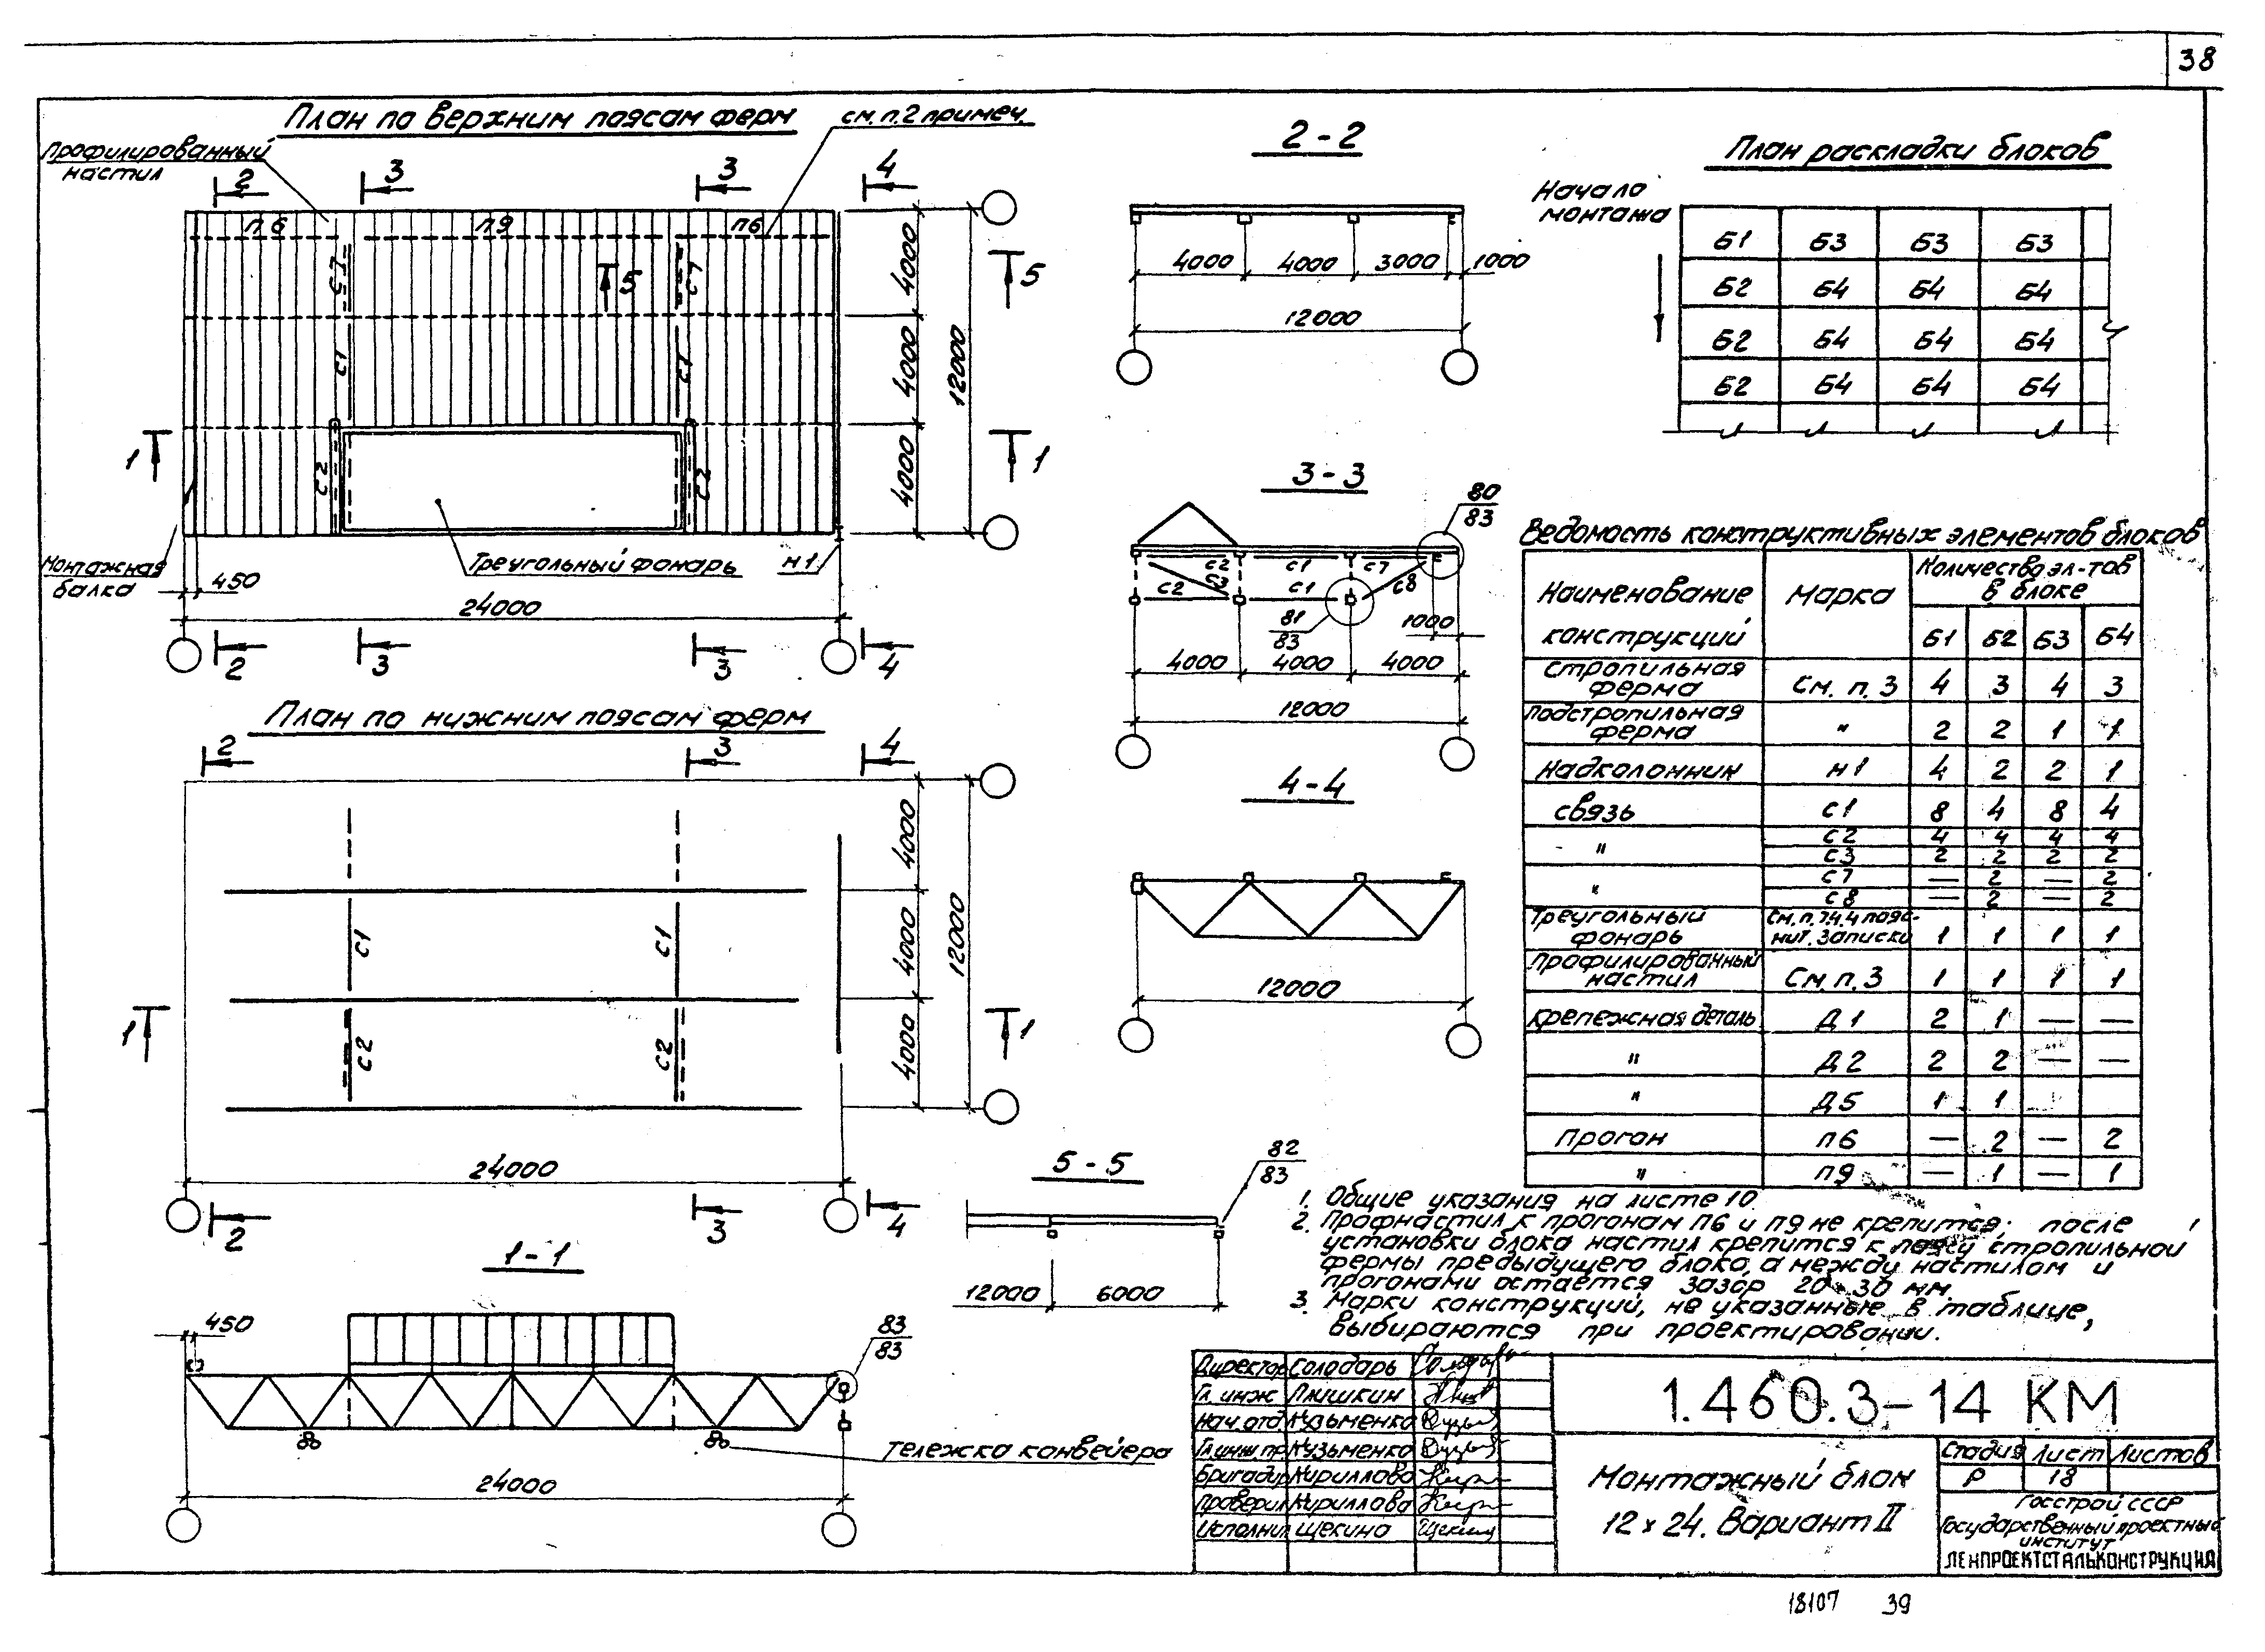 38
План по верхним поясам ферм
см. п. 2 примеч.
Профилированный
настил
2
3
3
4
п6
п9
п6
С7
5
С7
С1
С1
С2
С2
4000
4000
4000
12000
5
1
1
Монтажная
балка
450
Треугольный фонарь
н1
24000
2
3
3
4
План по нижним поясам ферм
2
3
4
С1
С1
С2
С2
4000
4000
4000
12000
1
1
24000
2
3
4
1-1
450
83
83
тележка конвейера
24000
2-2
4000
4000
3000
1000
12000
3-3
80
83
С2
С1
С7
С3
С8
С2
С1
81
83
1000
4000
4000
4000
12000
4-4
12000
5-5
82
83
12000
6000
План раскладки блоков
Начало
монтажа
Б1 Б3 Б3 Б3
Б2 Б4 Б4 Б4
Б2 Б4 Б4 Б4
Б2 Б4 Б4 Б4
Ведомость конструктивных элементов блоков
Наименование конструкций Марка Количество эл-тов в блоке
Б1 Б2 Б3 Б4
Стропильная ферма См. п. 3 4 3 4 3
Подстропильная ферма " 2 2 1 1
Надколонник н1 4 2 2 1
связь С1 8 4 8 4
" С2 4 4 4 4
С3 2 2 2 2
" С7 — 2 — 2
С8 — 2 — 2
Треугольный фонарь См. п. 7.4.4 пояснит. записки 1 1 1 1
Профилированный настил См. п. 3 1 1 1 1
крепежная деталь Д1 2 1 — —
" Д2 2 2 — —
" Д5 1 1
Прогон п6 — 2 — 2
" п9 — 1 — 1
1. Общие указания на листе 10.
2. Профнастил к прогонам п6 и п9 не крепится; после
установки блока настил крепится к поясу стропильной
фермы предыдущего блока, а между настилом и
прогонами остаётся зазор 20-30 мм.
3. Марки конструкций, не указанные в таблице,
выбираются при проектировании.
Директор Солодарь
Гл. инж Плишкин
Нач. отд Кузьменко
Гл. инж. пр. Кузьменко
Бригадир Кириллова
Проверил Кириллова
Исполнил Щекина
1.460.3-14 КМ
Монтажный блок
12 х 24. Вариант II
Стадия Лист Листов
Р 18
Госстрой СССР
Государственный проектный
институт
ЛЕНПРОЕКТСТАЛЬКОНСТРУКЦИЯ
18107 39